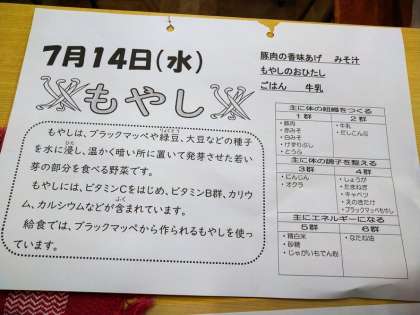 7月14日(水)
もやし
もやしは、ブラックマッペや緑豆、大豆などの種子
りょくとう
を水に浸し、温かく暗い所に置いて発芽させた若い
ひた
芽の部分を食べる野菜です。
もやしには、ビタミンCをはじめ、ビタミンB群、カリウ
ム、カルシウムなどが含まれています。
ふく
給食では、ブラックマッペから作られるもやしを使っ
ています。
豚肉の香味あげ みそ汁
もやしのおひたし
ごはん 牛乳
主に体の組織をつくる
1群 2群
・豚肉 ・牛乳
・赤みそ ・だしこんぶ
・白みそ
・けずりぶし
・とうふ
主に体の調子を整える
3群 4群
・にんじん ・しょうが
・オクラ ・たまねぎ
・キャベツ
・えのきたけ
・ブラックマッペもやし
主にエネルギーになる
5群 6群
・精白米 ・なたね油
・砂糖
・じゃがいもでん粉